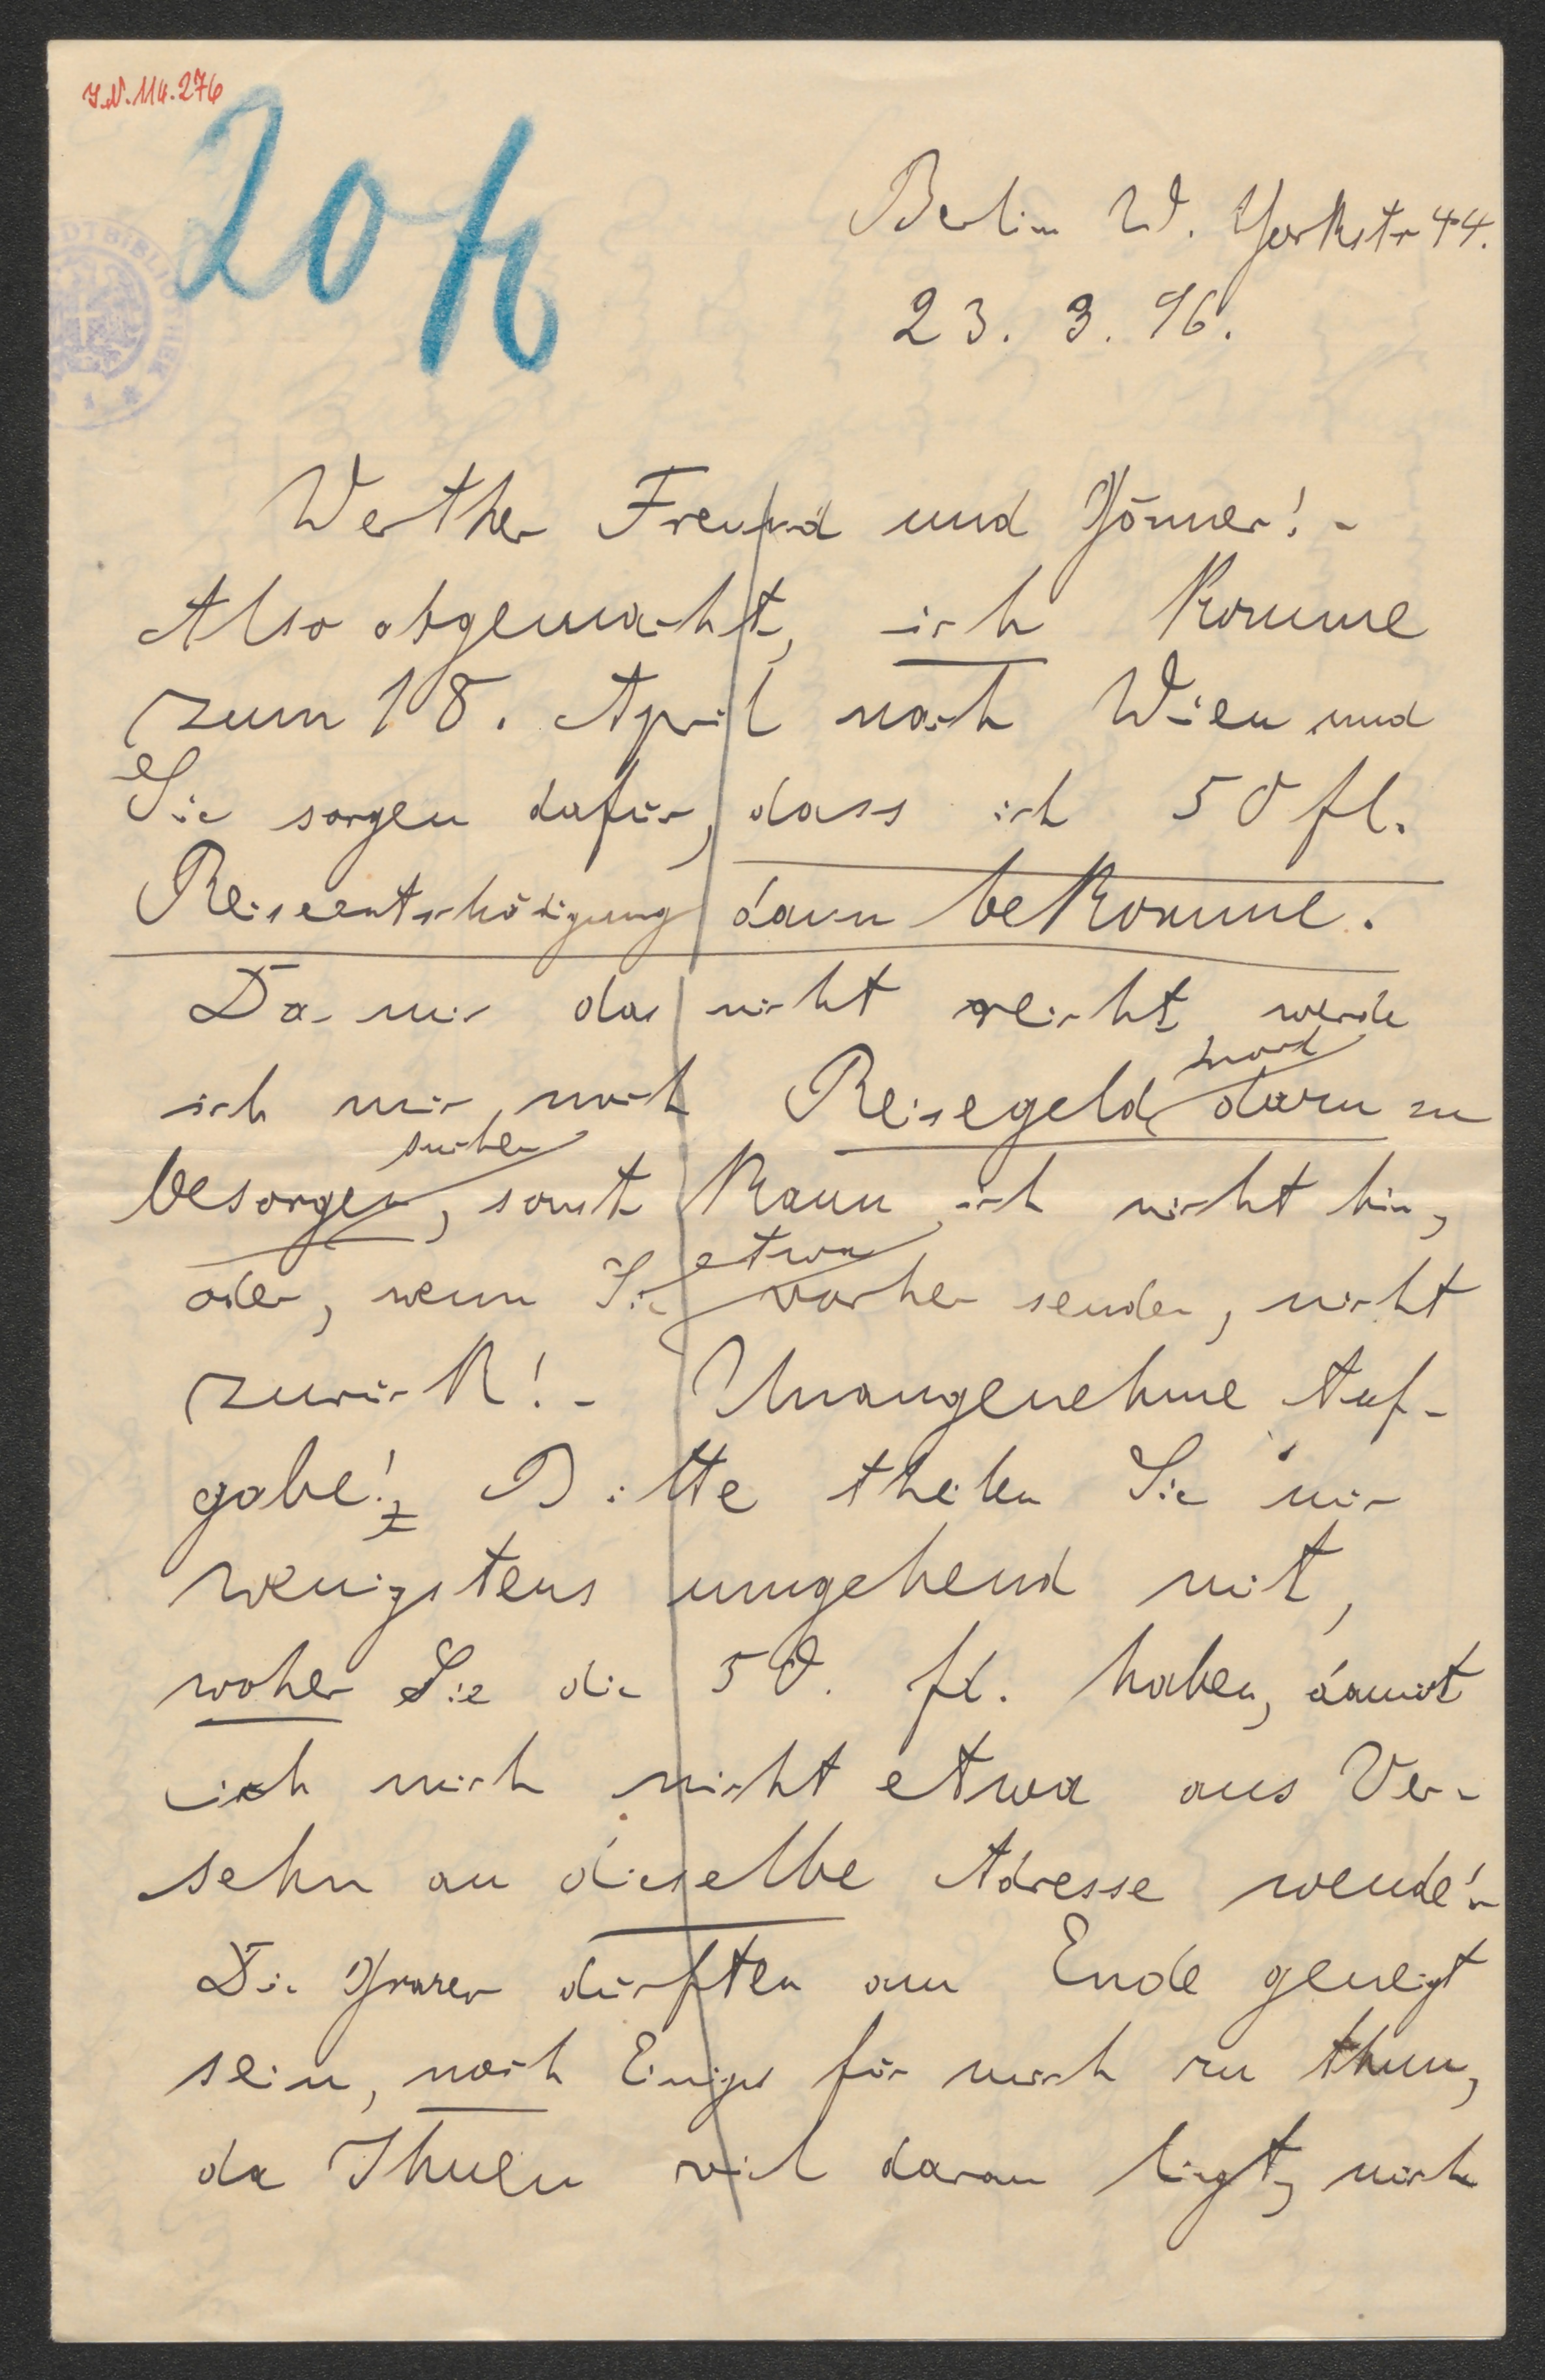 I.N. 114.276
20 fl
Berlin W. Yorkstr 44.
23. 3. 96.
Werther Freund und Gönner! -
Also abgemacht, ich komme
zum 18. April nach Wien und
Sie sorgen dafür, dass ich 50 fl.
Reiseentschädigung dann bekomme.
Da mir das nicht reicht werde
ich mir noch Reisegeld dazu zu
besorgen suchen, sonst kann ich nicht hin,
oder, wenn Sie etwa vorher senden, nicht
zurück! - Unangenehme Auf-
gabe! Bitte theilen Sie mir
wenigstens umgehend mit,
woher Sie die 50. fl. haben, damit
ich mich nicht etwa aus Ver-
sehn an dieselbe Adresse wende! -
Die Grazer dürften am Ende geneigt
sein, noch Einiges für mich zu thun,
da Ihnen viel daran liegt, mich